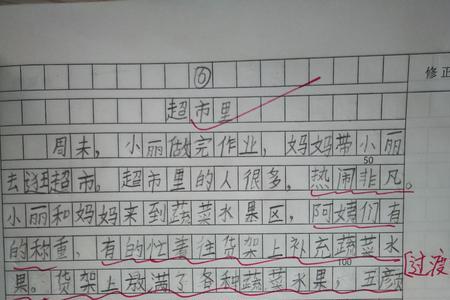 ⑥
修正
超市里
周末，小丽做完作业，妈妈带小丽
50
去逛超市。超市里的人很多，热闹非凡。
小丽和妈妈来到蔬菜水果区，阿姨们有
的称重，有的忙着往货架上补充蔬菜水
100
过渡
果。货架上放满了各种蔬菜水果，五颜